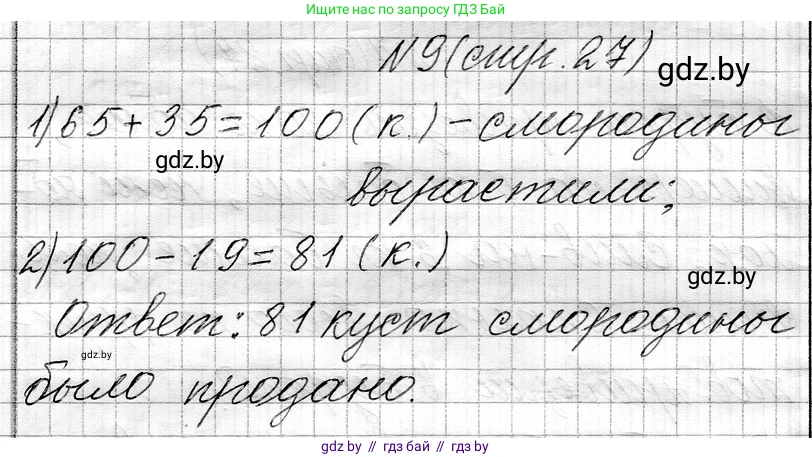 Ищите нас по запросу ГДЗ Бай
№9(стр.27)
gdz.by
1) 65+35=100(к.)-смородины
gdz.by
вырастили;
2) 100-19=81(к.)
gdz.by
Ответ: 81 куст смородины
gdz.by
было продано.
gdz.by // гдз бай // gdz.by